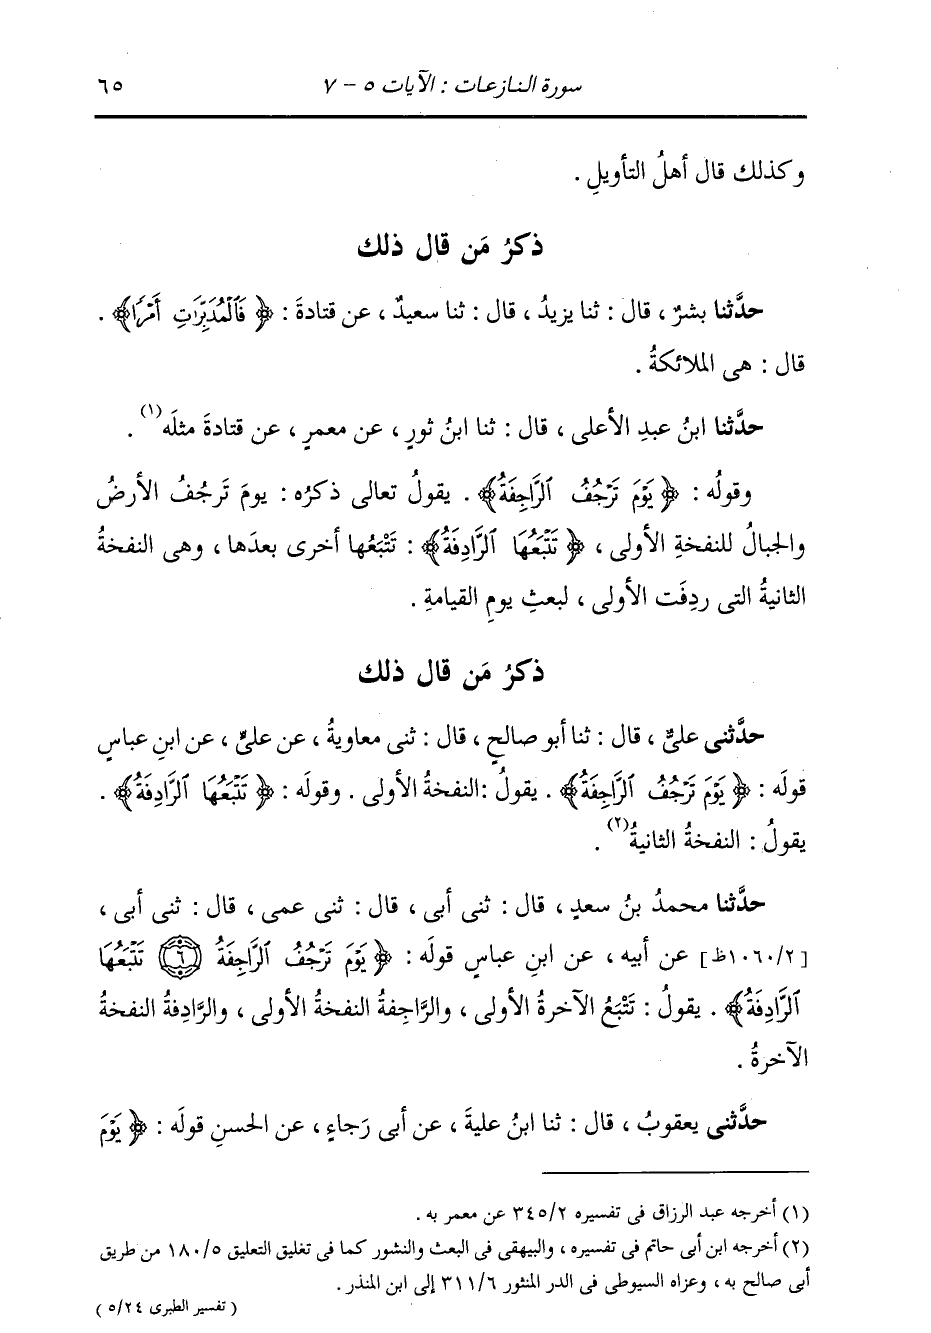 سورة النازعات : الآيات ٥ - ٧ ٦٥
وكذلك قال أهلُ التأويلِ .
ذكرُ مَن قال ذلك
حدَّثنا بشرٌ ، قال : ثنا يزيدُ ، قال : ثنا سعيدٌ ، عن قتادةَ : ﴿ فَٱلْمُدَبِّرَٰتِ أَمْرًا﴾ .
قال : هى الملائكةُ .
حدَّثنا ابنُ عبدِ الأعلى ، قال : ثنا ابنُ ثورٍ ، عن معمرٍ ، عن قتادةَ مثلَه(١) .
وقولُه : ﴿ يَوْمَ تَرْجُفُ ٱلرَّاجِفَةُ﴾ . يقولُ تعالى ذكرُه : يومَ تَرجُفُ الأرضُ
والجبالُ للنفخةِ الأولى ، ﴿ تَتْبَعُهَا ٱلرَّادِفَةُ﴾ : تَتْبَعُها أخرى بعدَها ، وهى النفخةُ
الثانيةُ التى ردِفَت الأولى ، لبعثِ يومِ القيامةِ .
ذكرُ مَن قال ذلك
حدَّثنى علىٌّ ، قال : ثنا أبو صالحٍ ، قال : ثنى معاويةُ ، عن علىٍّ ، عن ابنِ عباسٍ
قولَه : ﴿ يَوْمَ تَرْجُفُ ٱلرَّاجِفَةُ﴾ . يقولُ :النفخةُ الأولى . وقولَه : ﴿ تَتْبَعُهَا ٱلرَّادِفَةُ﴾ .
يقولُ : النفخةُ الثانيةُ(٢) .
حدَّثنا محمدُ بنُ سعدٍ ، قال : ثنى أبى ، قال : ثنى عمى ، قال : ثنى أبى ،
[١٠٦٠/٢ظ] عن أبيه ، عن ابنِ عباسٍ قولَه : ﴿ يَوْمَ تَرْجُفُ ٱلرَّاجِفَةُ ٦ تَتْبَعُهَا
ٱلرَّادِفَةُ﴾ . يقولُ : تَتْبَعُ الآخرةُ الأولى ، والرَّاجِفةُ النفخةُ الأولى ، والرَّادِفةُ النفخةُ
الآخرةُ .
حدَّثنى يعقوبُ ، قال : ثنا ابنُ عليةَ ، عن أبى رَجاءٍ ، عن الحسنِ قولَه : ﴿ يَوْمَ
(١) أخرجه عبد الرزاق فى تفسيره ٣٤٥/٢ عن معمر به .
(٢) أخرجه ابن أبى حاتم فى تفسيره ، والبيهقى فى البعث والنشور كما فى تغليق التعليق ١٨٠/٥ من طريق
أبى صالح به ، وعزاه السيوطى فى الدر المنثور ٣١١/٦ إلى ابن المنذر .
( تفسير الطبرى ٥/٢٤ )